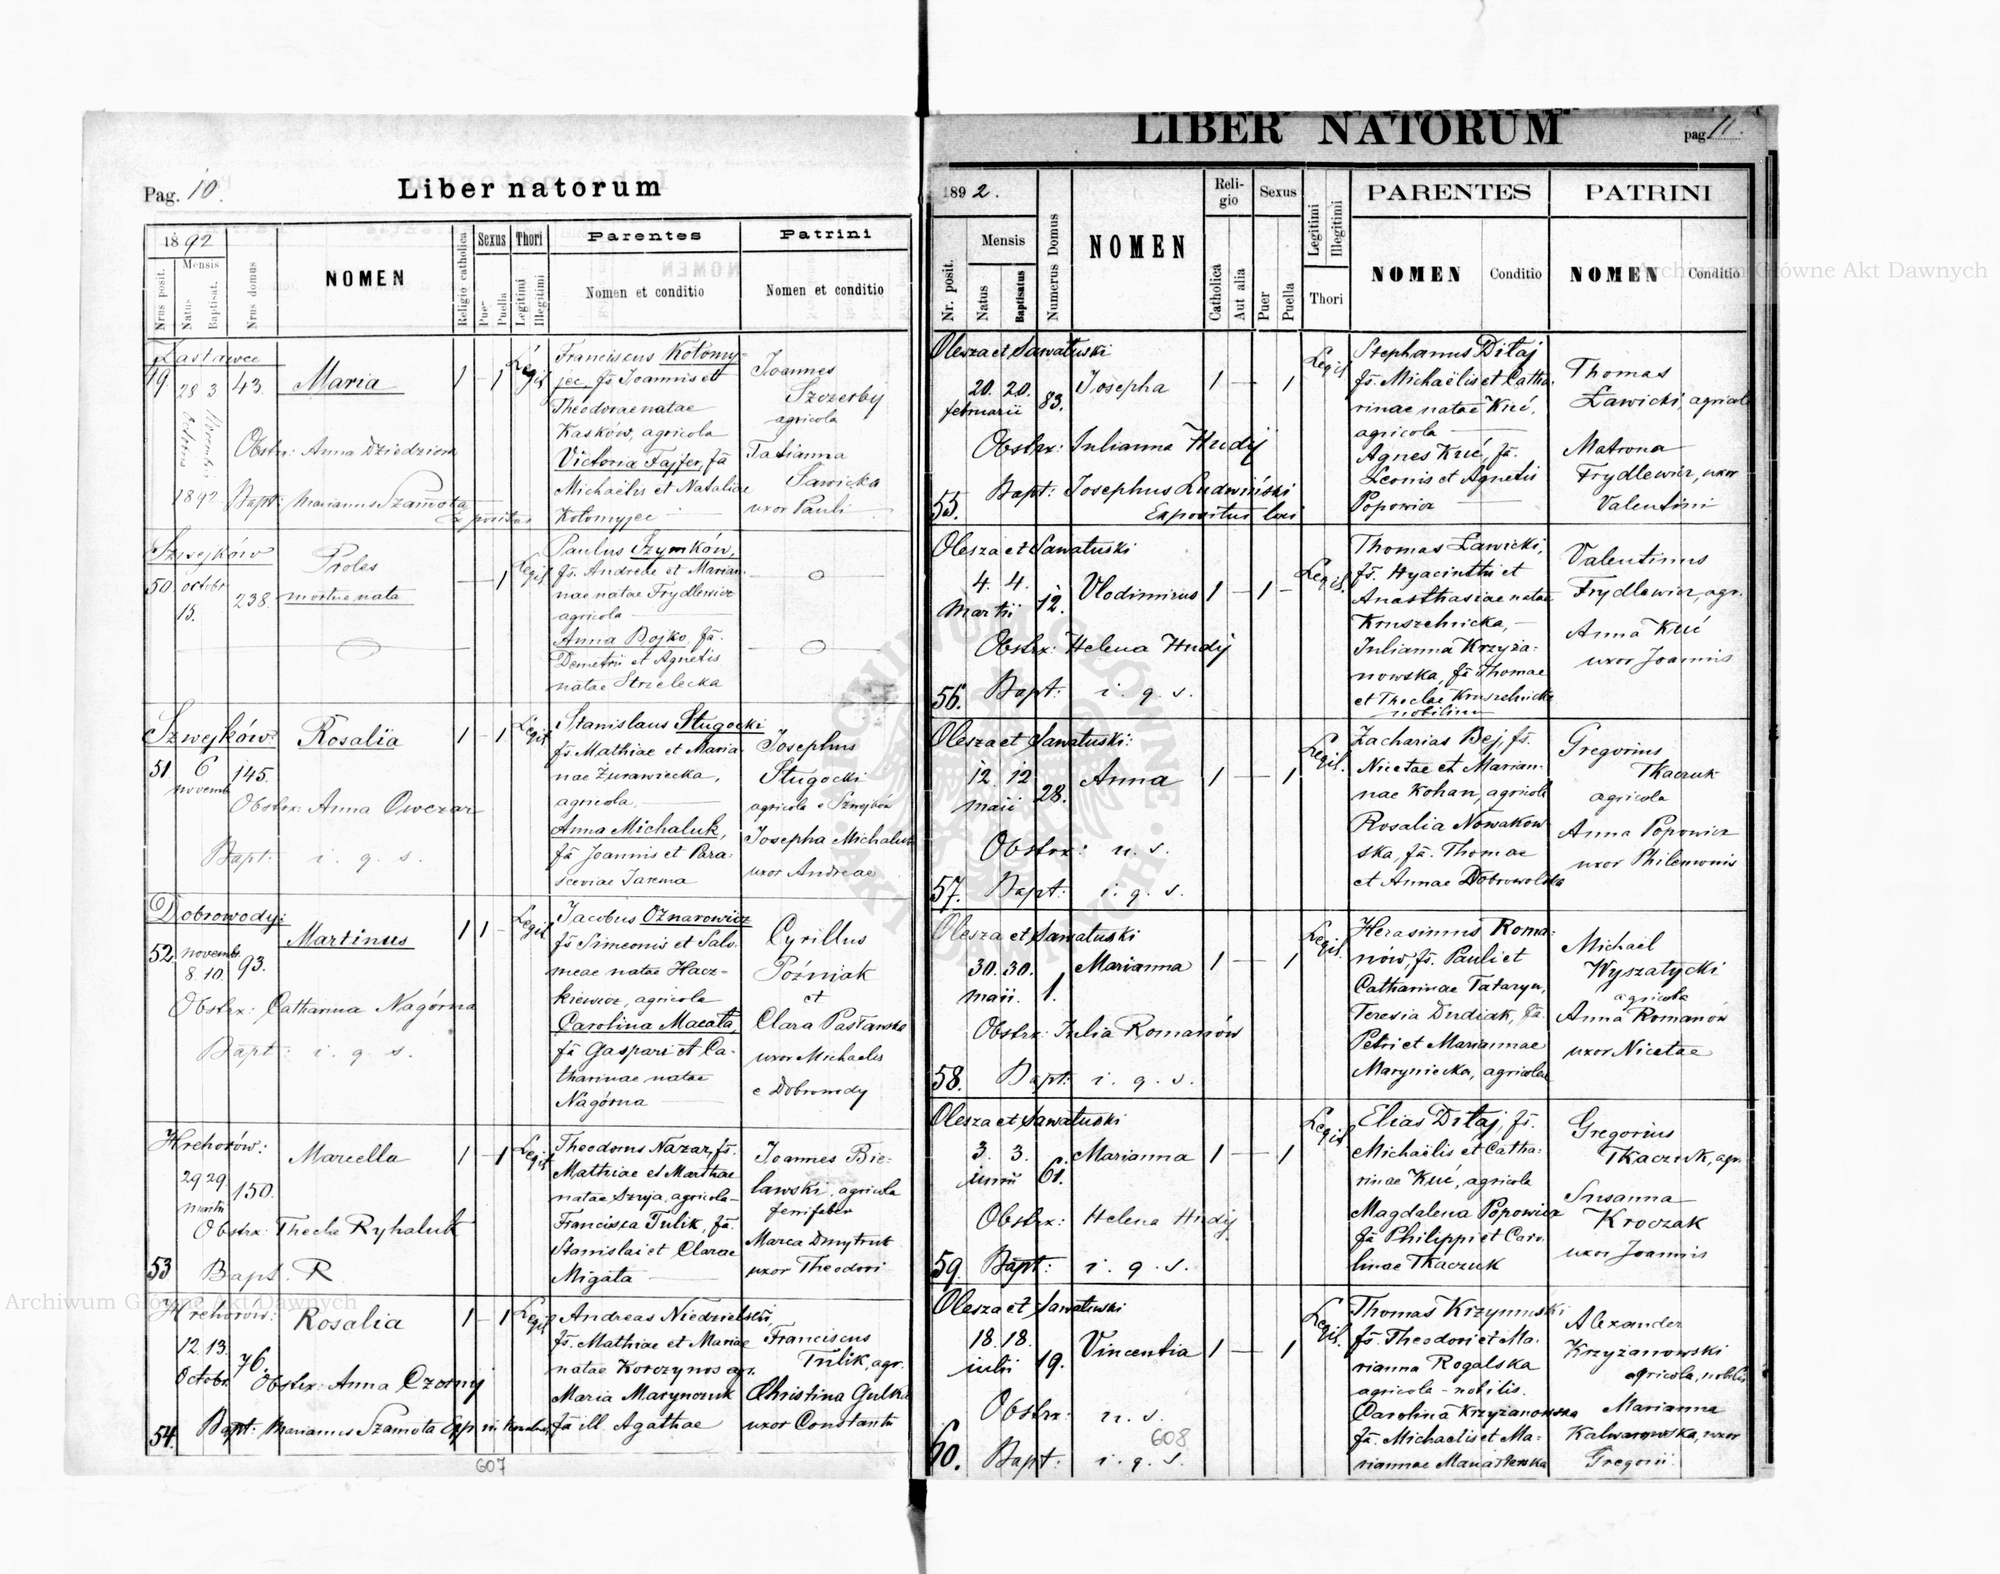 Pag. 10.
Liber natorum
1892
Mensis
Nrus posit.
Natus
Baptisat.
Nrus domus
NOMEN
Religio catholica
Sexus
Puer
Puella
Thori
Legitimi
Illegitimi
Parentes
Nomen et conditio
Patrini
Nomen et conditio
Zastawce
49
28 3
43.
Maria
1 - 1
Legit
1892
Obstrx: Anna Dziedzion
Bapt: Marianus Szamota
Expositus
Franciscus Kołomy-
jec, fs Joannis et
Theodorae natae
Kasków, agricola
Victoria Fajfer, fa
Michaëlis et Nataliae
Kołomyjec
Joannes
Szczerby
agricola
Tatianna
Sawicka
uxor Pauli
Szwejków
50. octobr
15.
238.
Proles
mortue nata
— 1
Legit
Paulus Szymków,
fs. Andreae et Marian-
nae natae Frydlewicz
agricola
Anna Bojko, fa.
Demetrii et Agnetis
natae Strzelecka
Szwejków:
51. 6
novemb
145.
Rosalia
1 - 1
Legit
Obstrx: Anna Owczar
Bapt: i. q. s.
Stanislaus Sługocki
fs Mathiae et Maria-
nae Żurawiecka,
agricola
Anna Michaluk,
fa Joannis et Para-
sceviae Jarema
Josephus
Sługocki
agricola e Szwejków
Josepha Michaluk
uxor Andreae
Dobrowody:
52. novemb
8. 10.
93.
Martinus
1 1 -
Legit
Obstrx: Catharina Nagórna
Bapt: i. q. s.
Jacobus Oznarowicz
fs Simeonis et Salo-
meae natae Hacz-
kiewicz, agricola
Carolina Macała,
fa Gaspari et Ca-
tharinae natae
Nagórna
Cyrillus
Poźniak
et
Clara Pasławska
uxor Michaelis
e Dobrowody
Hrehorów:
29 29
martii
150.
Marcella
1 - 1
Legit
Obstrx: Thecla Ryhaluk
53 Bapt. R
Theodorus Nazar, fs.
Mathiae et Marthae
natae Szuja, agricola-
Francisca Tulik, fa.
Stanislai et Clarae
Migata
Joannes Bie-
lawski, agricola
ferrifaber
Marca Dmytruk
uxor Theodori
Hrehorów:
12. 13.
Octobr.
76.
Rosalia
1 - 1
Legit
Obstrx: Anna Czorny
54. Bapt: Marianus Szamota Exp
Andreas Niedzielski,
fs. Mathiae et Mariae
natae Korczynos agr.
Maria Marynczuk
fa ill. Agathae
Franciscus
Tulik, agr.
Christina Gulka
uxor Constantii
607
LIBER NATORUM
pag. 11.
1892.
Mensis
Nr. posit.
Natus
Baptisatus
Numerus Domus
NOMEN
Religio
Catholica
Aut alia
Sexus
Puer
Puella
Legitimi
Illegitimi
Thori
PARENTES
NOMEN
Conditio
PATRINI
NOMEN
Conditio
Olesza et Sawałuski
20. 20.
februarii
83.
Josepha
1 — 1
Legit
Obstrx: Julianna Hudij
Bapt: Josephus Ludwiński
55. Expositus loci
Stephanus Diłaj
fs. Michaëlis et Catha-
rinae natae Kuć,
agricola
Agnes Kuć, fa.
Leonis et Agnetis
Popowicz
Thomas
Ławicki, agricola
Matrona
Frydlewicz, uxor
Valentini
Olesza et Sawałuski
4. 4.
Martii
12.
Vlodimirus
1 — 1 -
Legit.
Obstrx: Helena Hudij
56. Bapt: i. q. s.
Thomas Ławicki,
fs. Hyacinthi et
Anasthasiae natae
Kruszelnicka,
Julianna Krzyża-
nowska, fa Thomae
et Theclae Kruszelnicka
nobilium
Valentinus
Frydlewicz, agr.
Anna Kuć
uxor Joannis
Olesza et Sawałuski:
12. 12
maii
28.
Anna
1 — 1
Legit.
Obstrx: u. s.
57. Bapt: i. q. s.
Zacharias Bej, fs.
Nicetae et Marian-
nae Kohan, agricola
Rosalia Nowakow-
ska, fa. Thomae
et Annae Dobrowolska
Gregorius
Tkaczuk
agricola
Anna Popowicz
uxor Philemonis
Olesza et Sawałuski
30. 30.
maii.
1.
Marianna
1 — 1
Legit.
Obstrx: Julia Romanów
58. Bapt: i. q. s.
Herasimus Roma-
nów, fs. Pauli et
Catharinae Tataryn,
Teresia Dudiak, fa.
Petri et Mariannae
Maryniecka, agricolae
Michael
Wyszatycki
agricola
Anna Romanów
uxor Nicetae
Olesza et Sawałuski
3. 3.
junii
61.
Marianna
1 — 1
Legit
Obstrx: Helena Hudij
59. Bapt: i. q. s.
Elias Diłaj, fs.
Michaëlis et Catha-
rinae Kuć, agricola
Magdalena Popowicz
fa Philippi et Caro-
linae Tkaczuk
Gregorius
Tkaczuk, agr.
Susanna
Kroczak
uxor Joannis
Olesza et Sawałuski
18. 18.
iulii
19.
Vincentia
1 — 1
Legit.
Obstrx: u. s.
608
60. Bapt: i. q. s.
Thomas Krzymuski
fs. Theodori et Ma-
rianna Rogalska
agricola - nobilis.
Carolina Krzyżanowska
fa. Michaelis et Ma-
riannae Manasterska
Alexander
Krzyżanowski
agricola, nobilis
Marianna
Kalwarowska, uxor
Gregorii
Archiwum Główne Akt Dawnych
Archiwum Główne Akt Dawnych
ARCHIWUM GŁÓWNE AKT DAWNYCH